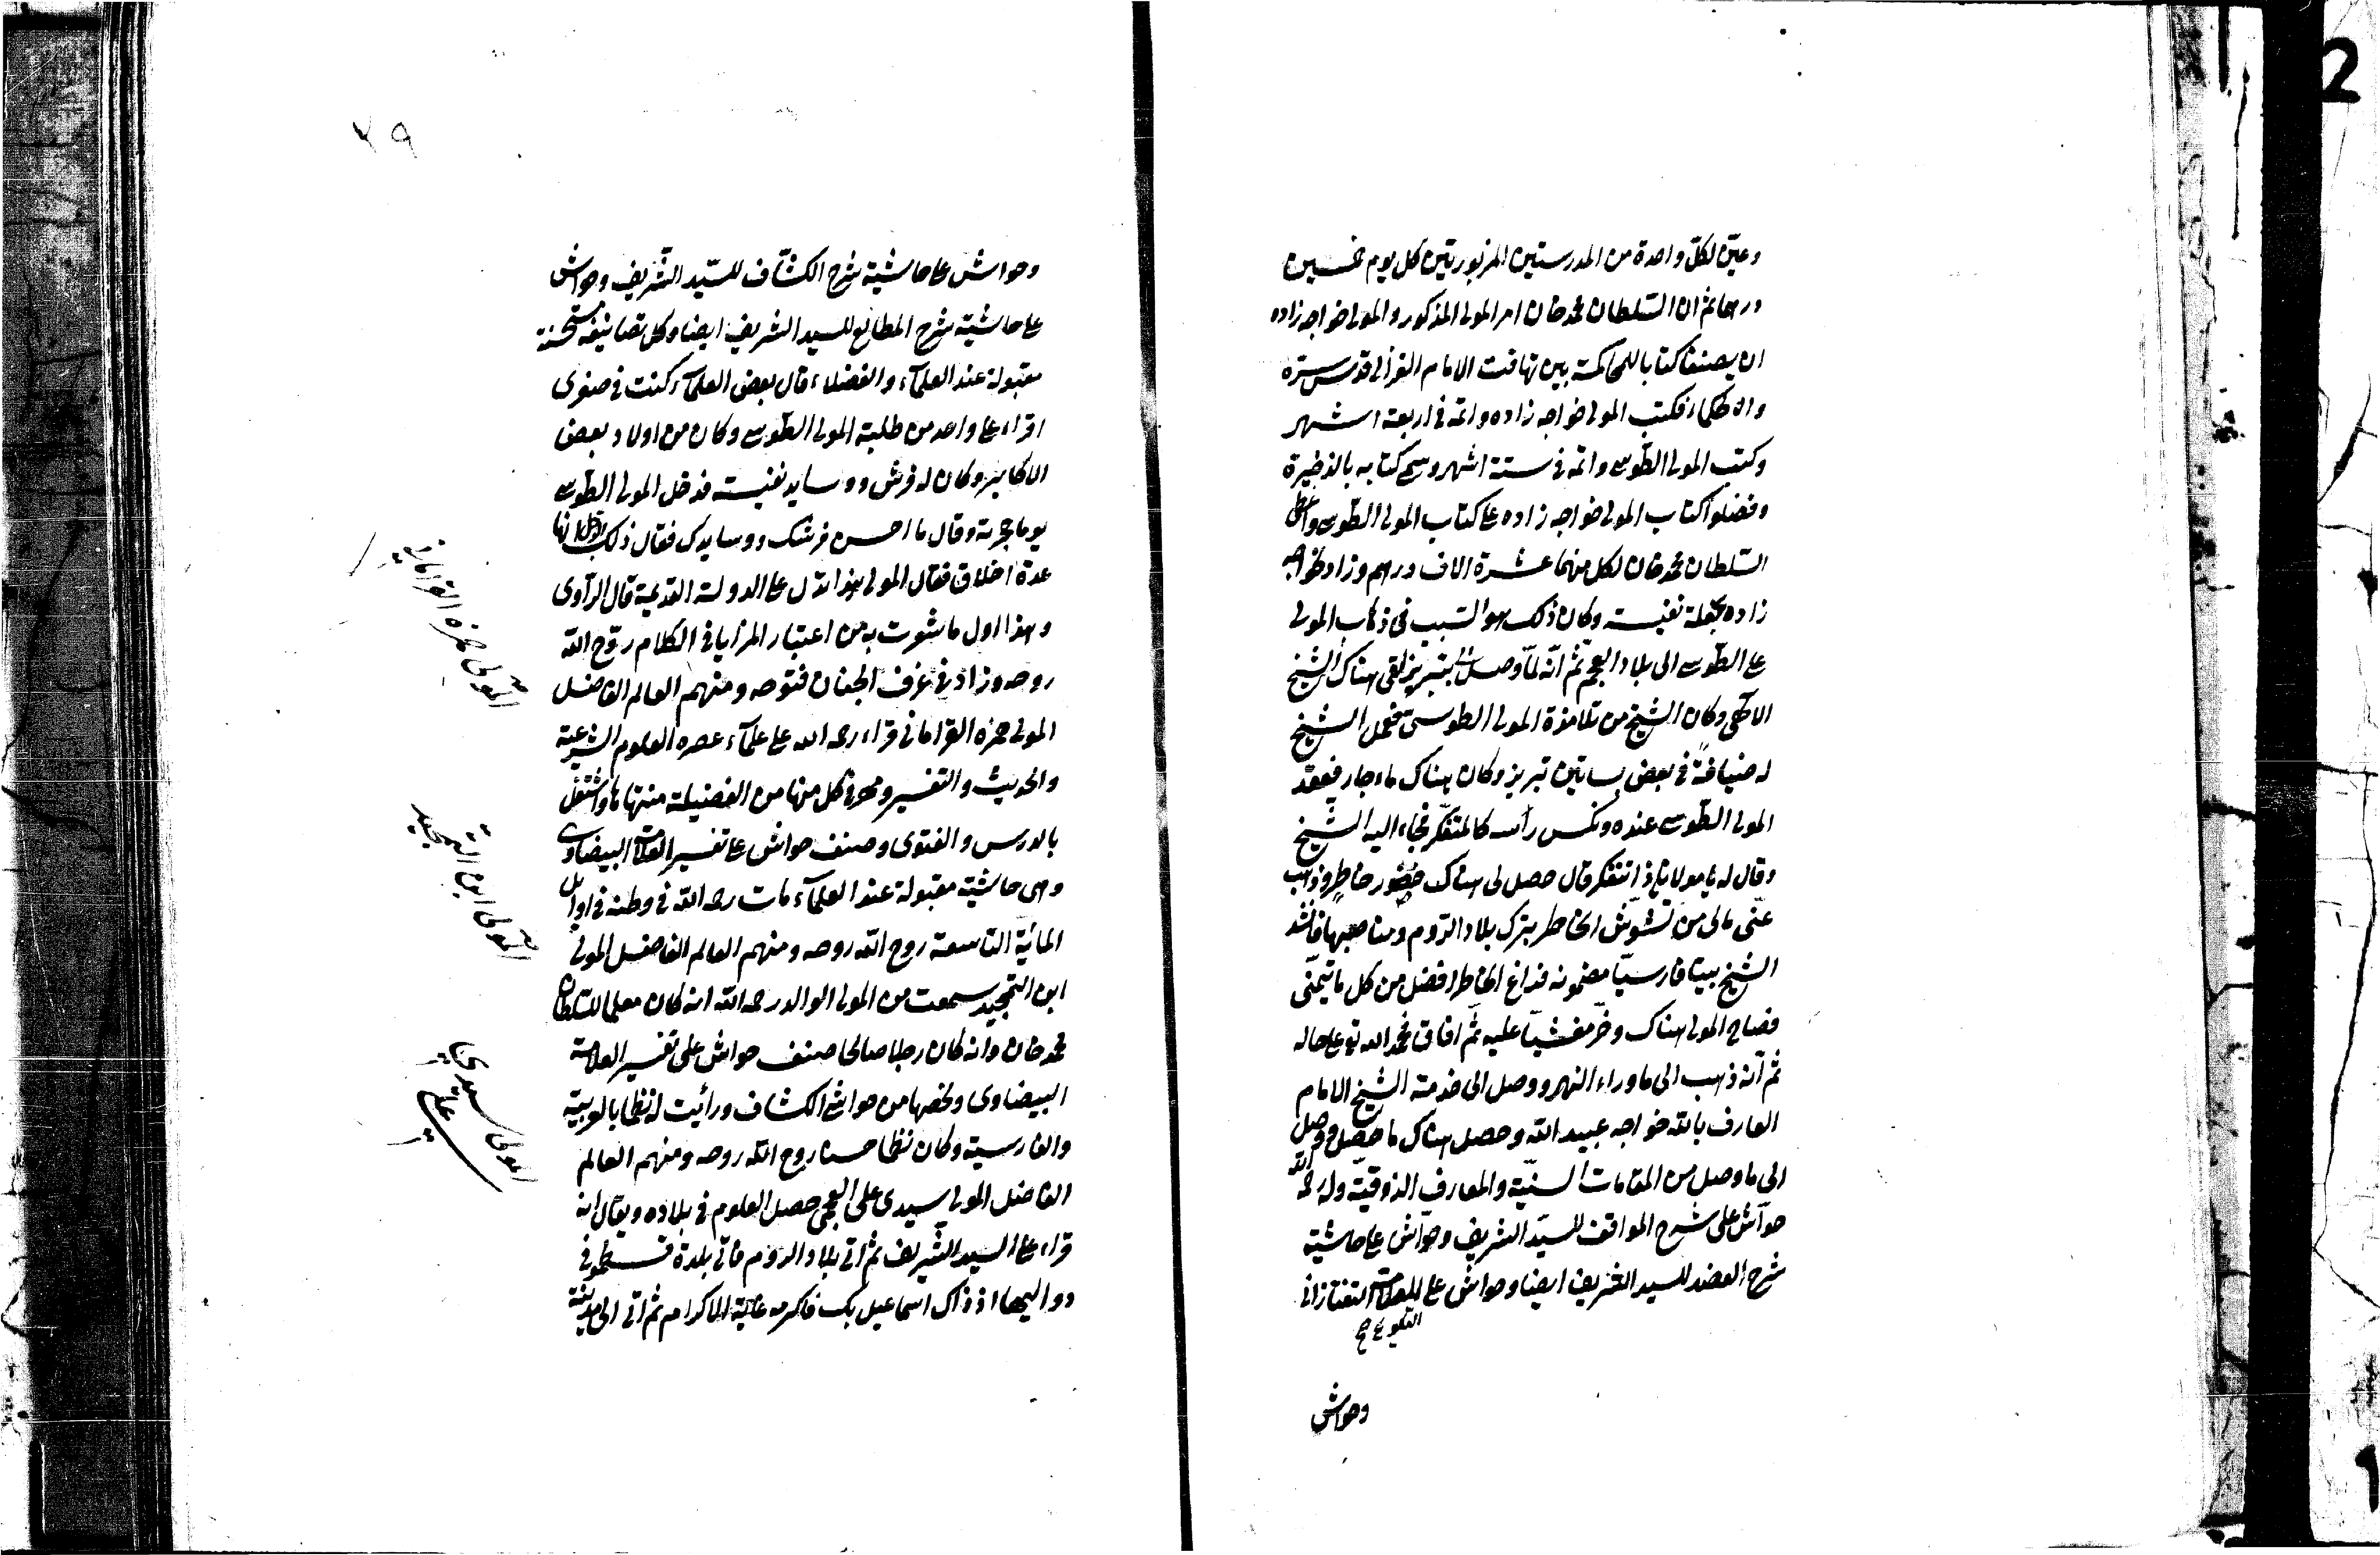 وعيّن لكلّ واحدة من المدرستين المزبورتين كل يوم خمسين
درهما ثم ان السّلطان محمد خان امر المولى المذكور والمولى خواجه زاده
ان يصنفا كتابا للمحاكمة بين تهافت الامام الغزالى قدس سرّه
والحكماء فكتب المولى خواجه زاده واتمه فى اربعة اشهر
وكتب المولى الطّوسى واتمه فى ستة اشهر وسمى كتابه بالذخيرة
وفضلوا كتاب المولى خواجه زاده على كتاب المولى الطّوسى واعطى
السّلطان محمد خان لكل منهما عشرة الاف درهم وزاد لخواجه
زاده بغلة نفيسة وكان ذلك هو السّبب فى ذهاب المولى
على الطّوسى الى بلاد العجم ثم انّه لمّا وصل الى تبريز لقى هناك الشيخ
الالهى وكان الشيخ من تلامذة المولى الطوسى فعمل الشيخ
له ضيافة فى بعض بساتين تبريز وكان هناك ماء جار فقعد
المولى الطّوسى عنده ونكس رأسه كالمتفكّر فجاء اليه الشّيخ
وقال له يا مولانا ماذا تتفكر قال حصل لى هناك حضور خاطر وذهب
عنّى مالى من تشوّش الخاطر بترك بلاد الرّوم ومناصبها فانشد
الشيخ بيتا فارسيّا مضمونه فراغ الخاطر افضل من كل ما يتمنّى
فصاح المولى هناك وخرّ مغشيّا عليه ثم افاق فحمد الله تع على حاله
ثم انه ذهب الى ماوراء النهر ووصل الى خدمة الشيخ الامام
العارف بالله خواجه عبيد الله وحصل هناك ما حصل ووصل
الى ما وصل من المقامات السنيّة والمعارف الذوقيّة وله رحمه الله
حواش على شرح المواقف للسيّد الشريف وحواش على حاشية
شرح العضد للسيد الشريف ايضا وحواش على التلويح للعلامة التفتازانى
وحواش
٧٩
وحواش على حاشية شرح الكشّاف للسّيد الشّريف وحواش
على حاشية شرح المطالع للسيد الشريف ايضا وكل تصانيفه مستحسنة
مقبولة عند العلمآء والفضلاء قال بعض العلمآء كنت فى صغرى
اقراء على واحد من طلبة المولى الطّوسى وكان من اولاد بعض
الاكابر وكان له فرش ووسايد نفيسة فدخل المولى الطّوسى
يوما حجرته وقال ما احسن فرشك ووسايدك فقال ذلك الرجل انها
عدة اخلاق فقال المولى هذا تدل على الدولة القديمة قال الرّاوى
وهذا اول ما شعرت به من اعتبار المزايا فى الكلام روّح الله
روحه وزاد فى غرف الجنان فتوحه ومنهم العالم الفاضل
المولى حمزه القرامانى قراء رحمه الله على علمآء عصره العلوم الشرعية
والحديث والتفسير ومهر فى كل منها من الفضيلة منتهاها واشتغل
بالدرس والفتوى وصنف حواش على تفسير العلامة البيضاوى
وهى حاشية مقبولة عند العلمآء مات رحمه الله فى وطنه فى اوايل
المائية التاسعة روح الله روحه ومنهم العالم الفاضل المولى
ابن التمجيد سمعت من المولى الوالد رحمه الله انه كان معلما للسّلطان
محمد خان وانه كان رجلا صالحا صنف حواش على تفسير العلامة
البيضاوى ولخصها من حواشى الكشاف ورأيت له نظما بالعربية
والفارسية وكان نظما حسنا روح الله روحه ومنهم العالم
الفاضل المولى سيدى على العجمى حصل العلوم فى بلاده ويقال انه
قراء على السيد الشّريف ثم اتى بلاد الروم فاتى بلدة قسطمونى
وواليها اذ ذاك اسماعيل بك فاكرمه غاية الاكرام ثم اتى الى مدينة
المولى حمزه القرامانى
المولى ابن التمجيد
المولى سيدى على